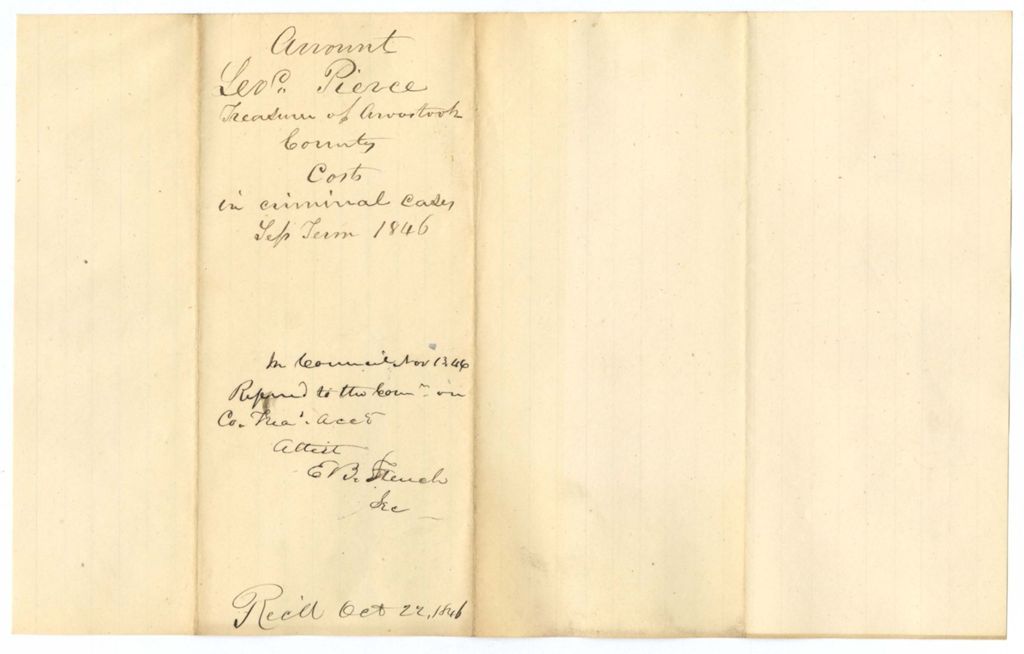 Account
Leoᵈ. Pierce
Treasurer of Aroostook
County
Costs
in criminal cases
Sep Term 1846
In Council Nov 13, 46
Referred to the Comᵉᵉ on
Co. Treaˢ. Acctˢ
Attest
E B. French
Sec
Rec'd Oct 22, 1846